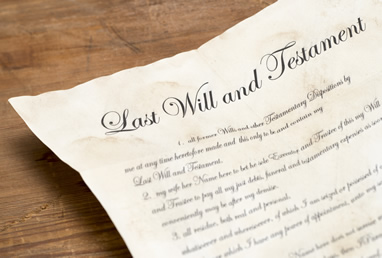 Last Will and Testament
1. all former Wills and other Testamentary Dispositions by
me at any time heretofore made and this only to be and contain my
Last Will and Testament.
2. my wife her Name here to be he sole Executor and Trustee of this my Will
and Trustee to pay all my just debts, funeral and testamentary expenses as soon
conveniently may be after my demise.
3. all residue, both real and personal,
whatsoever and wheresoever, of which I may
over which I have any power of appointment,
Name here does not